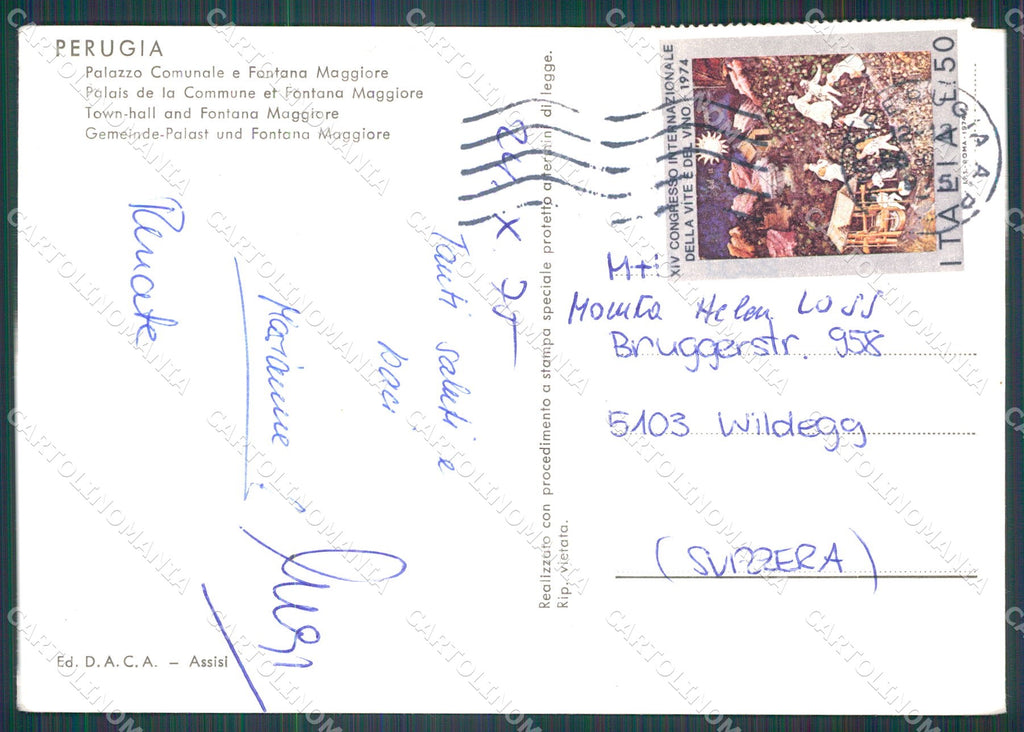 PERUGIA
Palazzo Comunale e Fontana Maggiore
Palais de la Commune et Fontana Maggiore
Town-hall and Fontana Maggiore
Gemeinde-Palast und Fontana Maggiore
X 75
Tanti saluti e
baci
Marianne
Renate
Ed. D.A.C.A. – Assisi
Realizzato con procedimento a stampa speciale protetto a termini di legge.
Rip. vietata.
XIV CONGRESSO INTERNAZIONALE
DELLA VITE E DEL VINO · 1974
ITALIA £.50
Helen
Bruggerstr. 958
5103 Wildegg
(SVIZZERA)
CARTOLINOMANIA